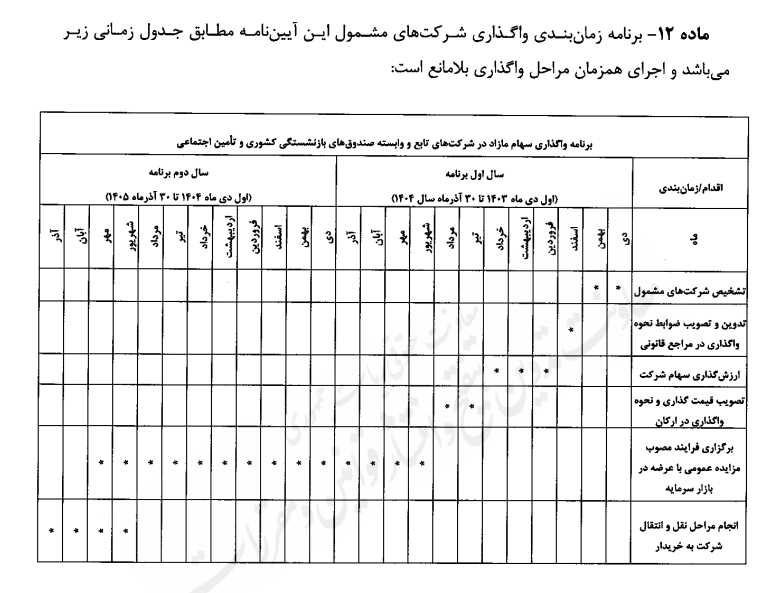 ماده ۱۲- برنامه زمان‌بندی واگذاری شرکت‌های مشمول این آیین‌نامه مطابق جدول زمانی زیر
می‌باشد و اجرای همزمان مراحل واگذاری بلامانع است:
برنامه واگذاری سهام مازاد در شرکت‌های تابع و وابسته صندوق‌های بازنشستگی کشوری و تأمین اجتماعی
اقدام/زمان‌بندی
سال اول برنامه
(اول دی ماه ۱۴۰۳ تا ۳۰ آذرماه سال ۱۴۰۴)
سال دوم برنامه
(اول دی ماه ۱۴۰۴ تا ۳۰ آذرماه ۱۴۰۵)
ماه دی بهمن اسفند فروردین اردیبهشت خرداد تیر مرداد شهریور مهر آبان آذر دی بهمن اسفند فروردین اردیبهشت خرداد تیر مرداد شهریور مهر آبان آذر
تشخیص شرکت‌های مشمول * *
تدوین و تصویب ضوابط نحوه
واگذاری در مراجع قانونی *
ارزش‌گذاری سهام شرکت * * *
تصویب قیمت گذاری و نحوه
واگذاری در ارکان * *
برگزاری فرایند مصوب
مزایده عمومی با عرضه در
بازار سرمایه * * * * * * * * * * * * * *
انجام مراحل نقل و انتقال
شرکت به خریدار * * * *
معاونت حقوقی ریاست جمهوری
معاونت تدوین، تنقیح و انتشار قوانین و مقررات